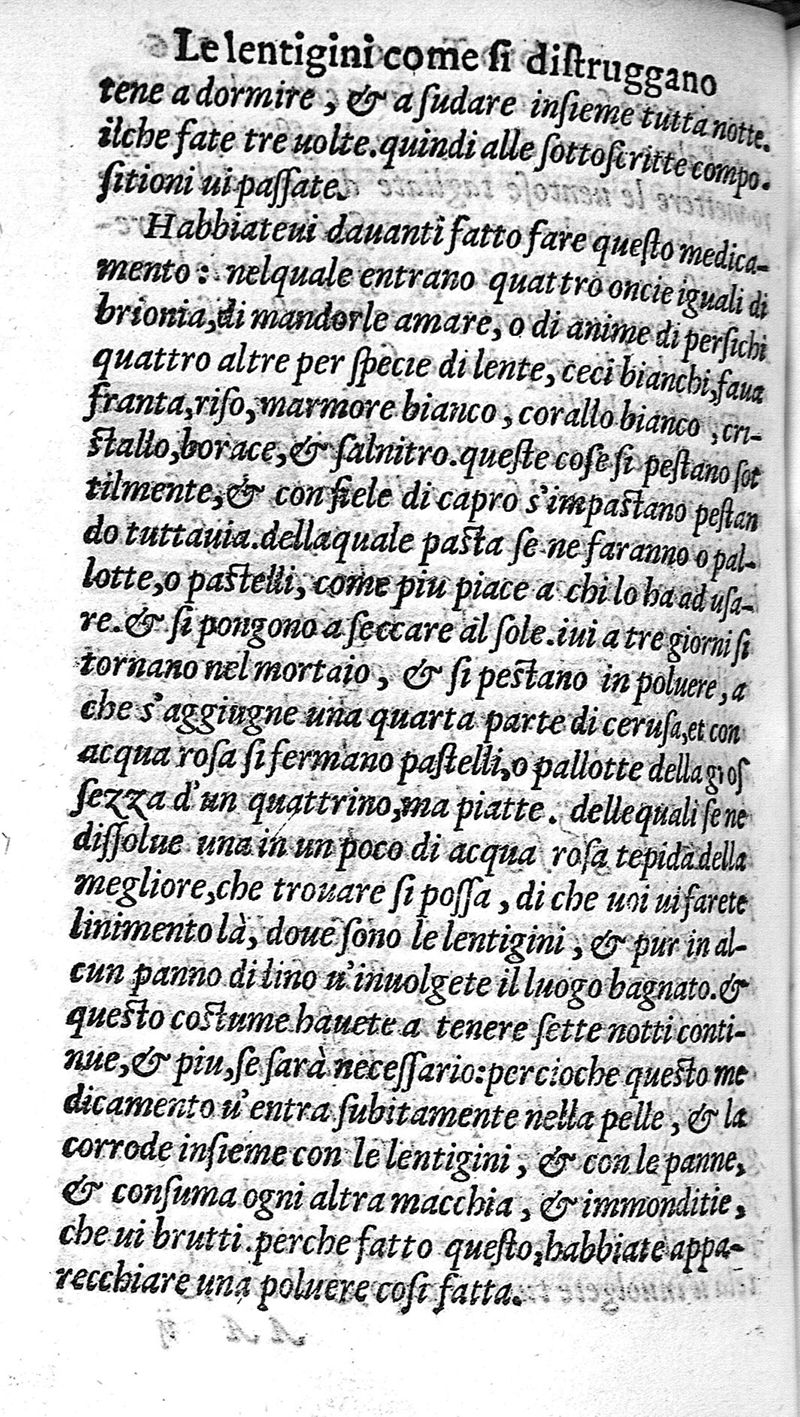 Le lentigini come si distruggano
tene a dormire, & a ſudare inſieme tutta notte.
ilche fate tre uolte. quindi alle ſottoſcritte compo-
ſitioni ui paſſate.
Habbiateui dauanti fatto fare queſto medica-
mento: nelquale entrano quattro oncie iguali di
brionia, di mandorle amare, o di anime di perſichi
quattro altre per ſpecie di lente, ceci bianchi, faua
franta, riſo, marmore bianco, corallo bianco, cri-
ſtallo, borace, & ſalnitro. queſte coſe ſi peſtano ſot
tilmente, & con fiele di capro s'impaſtano peſtan
do tuttauia. dellaquale paſta ſe ne faranno o pal-
lotte, o paſtelli, come piu piace a chi lo ha ad uſa-
re. & ſi pongono a ſeccare al ſole. iui a tre giorni ſi
tornano nel mortaio, & ſi peſtano in poluere, a
che s'aggiugne una quarta parte di ceruſa, et con
acqua roſa ſi fermano paſtelli, o pallotte della groſ
ſezza d'un quattrino, ma piatte. delle quali ſe ne
diſſolue una in un poco di acqua roſa tepida della
megliore, che trouare ſi poſſa, di che uoi ui farete
linimento là, doue ſono le lentigini, & pur in al-
cun panno di lino u'inuolgete il luogo bagnato. &
queſto coſtume hauete a tenere ſette notti conti-
nue, & piu, ſe ſarà neceſſario: percioche queſto me
dicamento u'entra ſubitamente nella pelle, & la
corrode inſieme con le lentigini, & con le panne,
& conſuma ogni altra macchia, & immonditie,
che ui brutti. perche fatto queſto, habbiate appa-
recchiare una poluere coſi fatta.